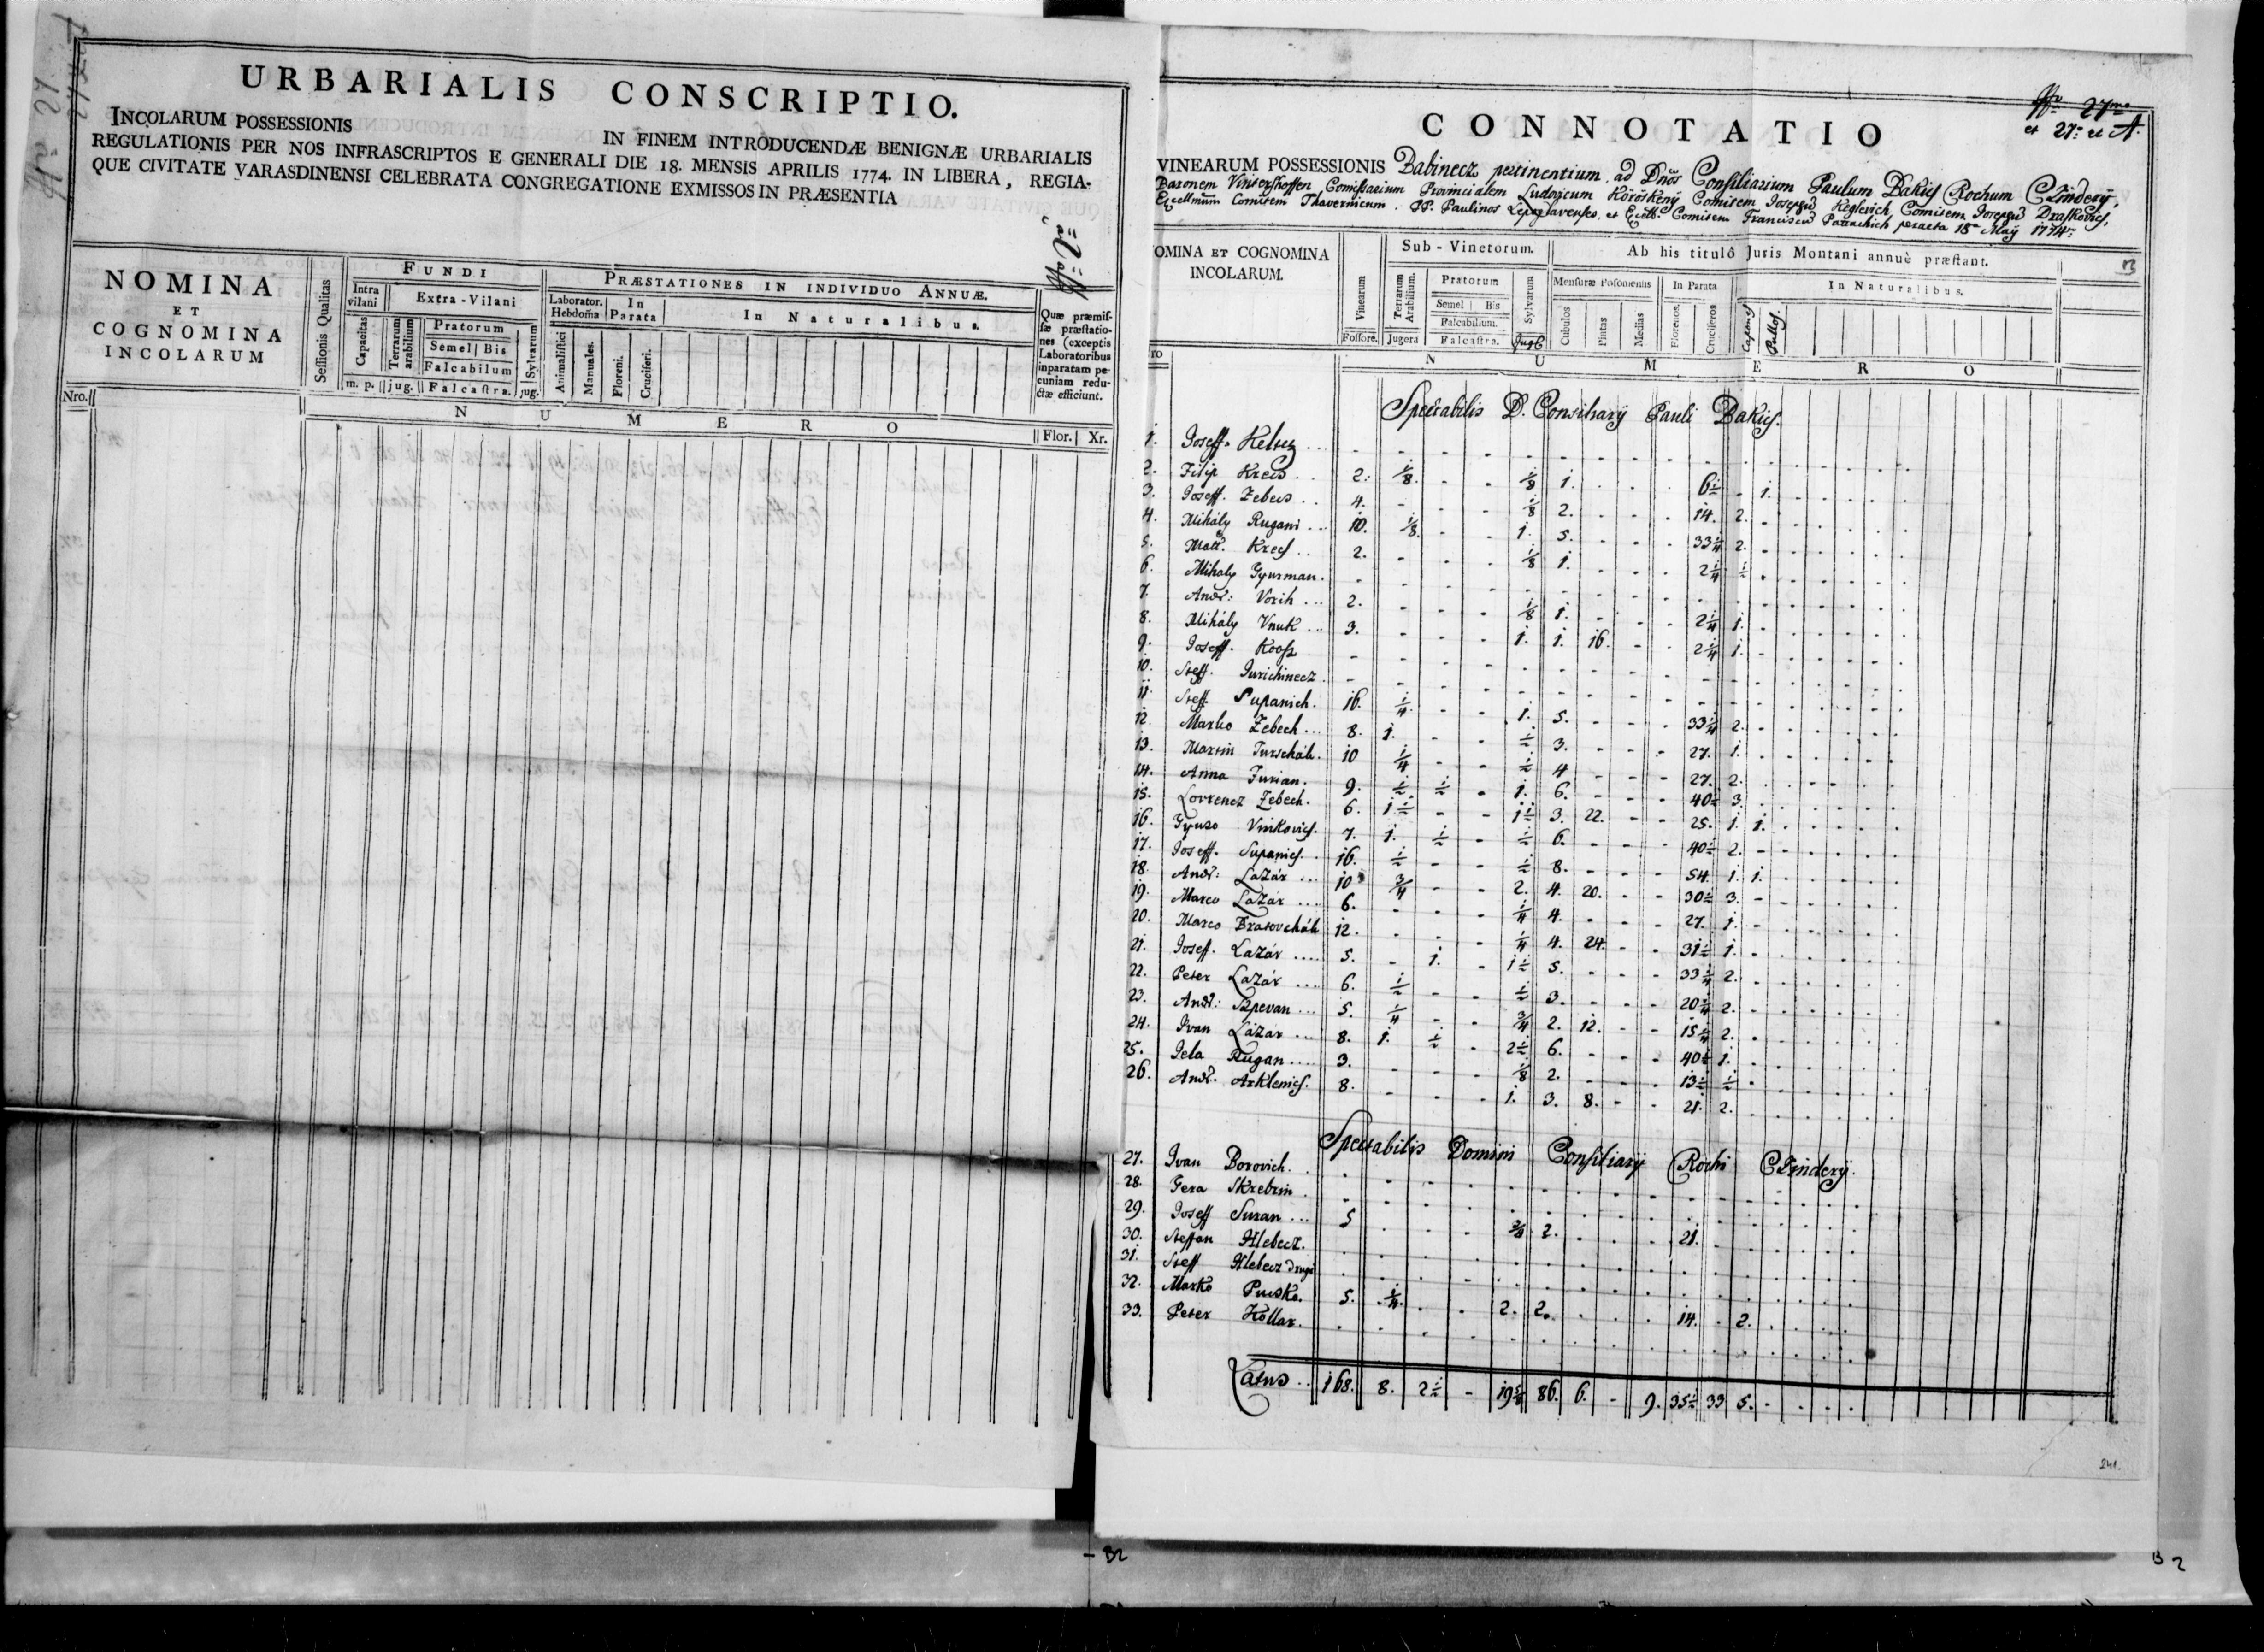 Nro 21.
URBARIALIS CONSCRIPTIO.
INCOLARUM POSSESSIONIS IN FINEM INTRODUCENDÆ BENIGNÆ URBARIALIS
REGULATIONIS PER NOS INFRASCRIPTOS E GENERALI DIE 18. MENSIS APRILIS 1774. IN LIBERA, REGIA-
QUE CIVITATE VARASDINENSI CELEBRATA CONGREGATIONE EXMISSOS IN PRÆSENTIA
NOMINA
ET
COGNOMINA
INCOLARUM
Sessionis Qualitas
FUNDI
Intra vilani
Extra-Vilani
Capacitas
Terrarum arabilium
Pratorum
Semel | Bis
Falcabilum
Sylvarum
m. p. | jug. | Falcastra. | jug.
PRÆSTATIONES IN INDIVIDUO ANNUÆ.
Laborator. Hebdoma
In Parata
In Naturalibus.
Animalistici
Manuales.
Floreni.
Cruciferi.
Quæ præmis-
sæ præstatio-
nes (exceptis
Laboratoribus
inparatam pe-
cuniam redu-
ctæ efficiunt.
Nro.
NUMERO
Flor. | Xr.
Nro 27mo
et 27: et A.
CONNOTATIO
VINEARUM POSSESSIONIS Babinecz pertinentium ad Dnos Consiliarium Paulum Bakics Rochum Czindery,
Baronem Vintershoffen Comissarium Provincialem Ludovicum Köröskeny Comitem Josephu Keglevich, Comitem Josephu Draskovics,
Excellmum Comitem Thavernicum. PP. Paulinos Lepoglavenses, et Excell. Comitem Franciscu Patachich peracta 18a May 1774:
OMINA ET COGNOMINA
INCOLARUM.
Vinearum
Fossore.
Sub-Vinetorum.
Terrarum Arabilium.
Jugera
Pratorum
Semel | Bis
Falcabilium.
Falcastra.
Sylvarum
Jug
Ab his titulô Juris Montani annuè præstant.
Mensuræ Posoniensis
Cubulos
Pintas
Medias
In Parata
Florenos.
Cruciferos
In Naturalibus.
Capones
Pullos.
NUMERO
Spectabilis D. Consiliarÿ Pauli Bakics.
1. Joseff. Keltez ...
2. Filip Kreis .. 2. 1/8 - - 1/8 1. - - - 6 1/2 - 1.
3. Joseff. Zebecs .. 4. - - - 1/8 2. - - - 14. 2.
4. Mihály Rugani ... 10. 1/8 - - 1. 5. - - - 33 1/4 2.
5. Matt. Krecs .. 2. - - - 1/8 1. - - - 2 1/4 1/2
6. Mihaly Gyurman.
7. Andr: Vorih ... 2. - - - 1/8 1. - - - 2 1/4 1.
8. Mihály Vnuk ... 3. - - - 1. 1. 16. - - 2 1/4 1.
9. Joseff. Koosz
10. Steff. Jurichinecz
11. Steff. Supanich. 16. 1/4 - - 1. 5. - - - 33 1/4 2.
12. Marko Zebech ... 8. 1. - - 1/2 3. - - - 27. 1.
13. Martin Turschák. 10 1/4 - - 1/2 4 - - - 27. 2.
14. Anna Jurian. 9. 1/2 1/2 - 1. 6. - - - 40 1/2 3.
15. Lovrencz Zebech. 6. 1 1/2 - - 1 1/2 3. 22. - - 25. 1. 1.
16. Gyuro Vinkovics. 7. 1. 1/2 - 1/2 6. - - - 40 1/2 2.
17. Joseff. Supanics. 16. 1/2 - - 1/2 8. - - - 54. 1. 1.
18. Andr: Lazár ... 10 3/4 - - 2. 4. 20. - - 30 1/2 3.
19. Marco Lazár .... 6. - - - 1/4 4. - - - 27. 1.
20. Marco Bratovchák 12. - - - 1/4 4. 24. - - 31 1/2 1.
21. Joseff. Lazár .... 5. - 1. - 1 1/2 5. - - - 33 1/4 2.
22. Peter Lazár .... 6. 1/2 - - 1/2 3. - - - 20 1/4 2.
23. Andr: Szpevan ... 5. 1/4 - - 3/4 2. 12. - - 15 1/4 2.
24. Ivan Lázár ... 8. 1. 1/2 - 2 1/2 6. - - - 40 1/2 1.
25. Jela Rugan .... 3. - - - 1/8 2. - - - 13 1/2 1/2
26. Andr. Arklenics. 8. - - - 1. 3. 8. - - 21. 2.
Spectabilis Domini Consiliarÿ Rochi Czinderÿ.
27. Ivan Borovich.
28. Fera Skrebrin.
29. Joseff Suran ... 5 . . . 3/8 2. . . . 21.
30. Steffan Hlebecz.
31. Steff Hlebecz drugi
32. Marko Pusko. 5. 1/4. . . 2. 2. . . . 14. . 2.
33. Peter Kollar.
Latus .. 168. 8. 2 1/2 - 19 5/8 86. 6. - 9. 35 1/2 33 5.
241.
- B2
B 2